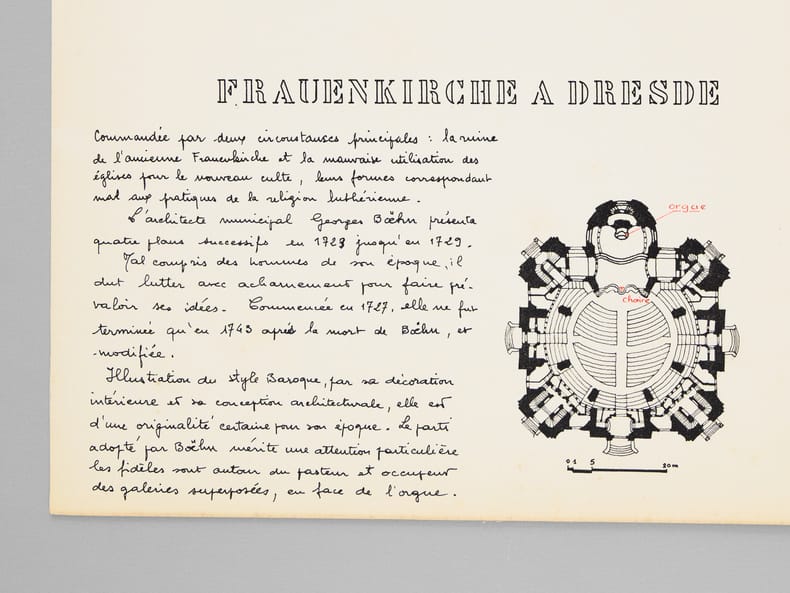 FRAUENKIRCHE A DRESDE
Commandée par deux circonstances principales : la ruine
de l'ancienne Frauenkirche et la mauvaise utilisation des
églises pour le nouveau culte, leurs formes correspondant
mal aux pratiques de la religion luthérienne.
L'architecte municipal Georges Boëhn présenta
quatre plans successifs en 1723 jusqu'en 1729.
Mal compris des hommes de son époque, il
dut lutter avec acharnement pour faire pré-
valoir ses idées. Commencée en 1727, elle ne fut
terminée qu'en 1743 après la mort de Boëhn, et
modifiée.
Illustration du style Baroque, par sa décoration
intérieure et sa conception architecturale, elle est
d'une originalité certaine pour son époque. Le parti
adopté par Boëhn mérite une attention particulière
les fidèles sont autour du pasteur et occupent
des galeries superposées, en face de l'orgue.
orgue
chaire
0 1 5 20m